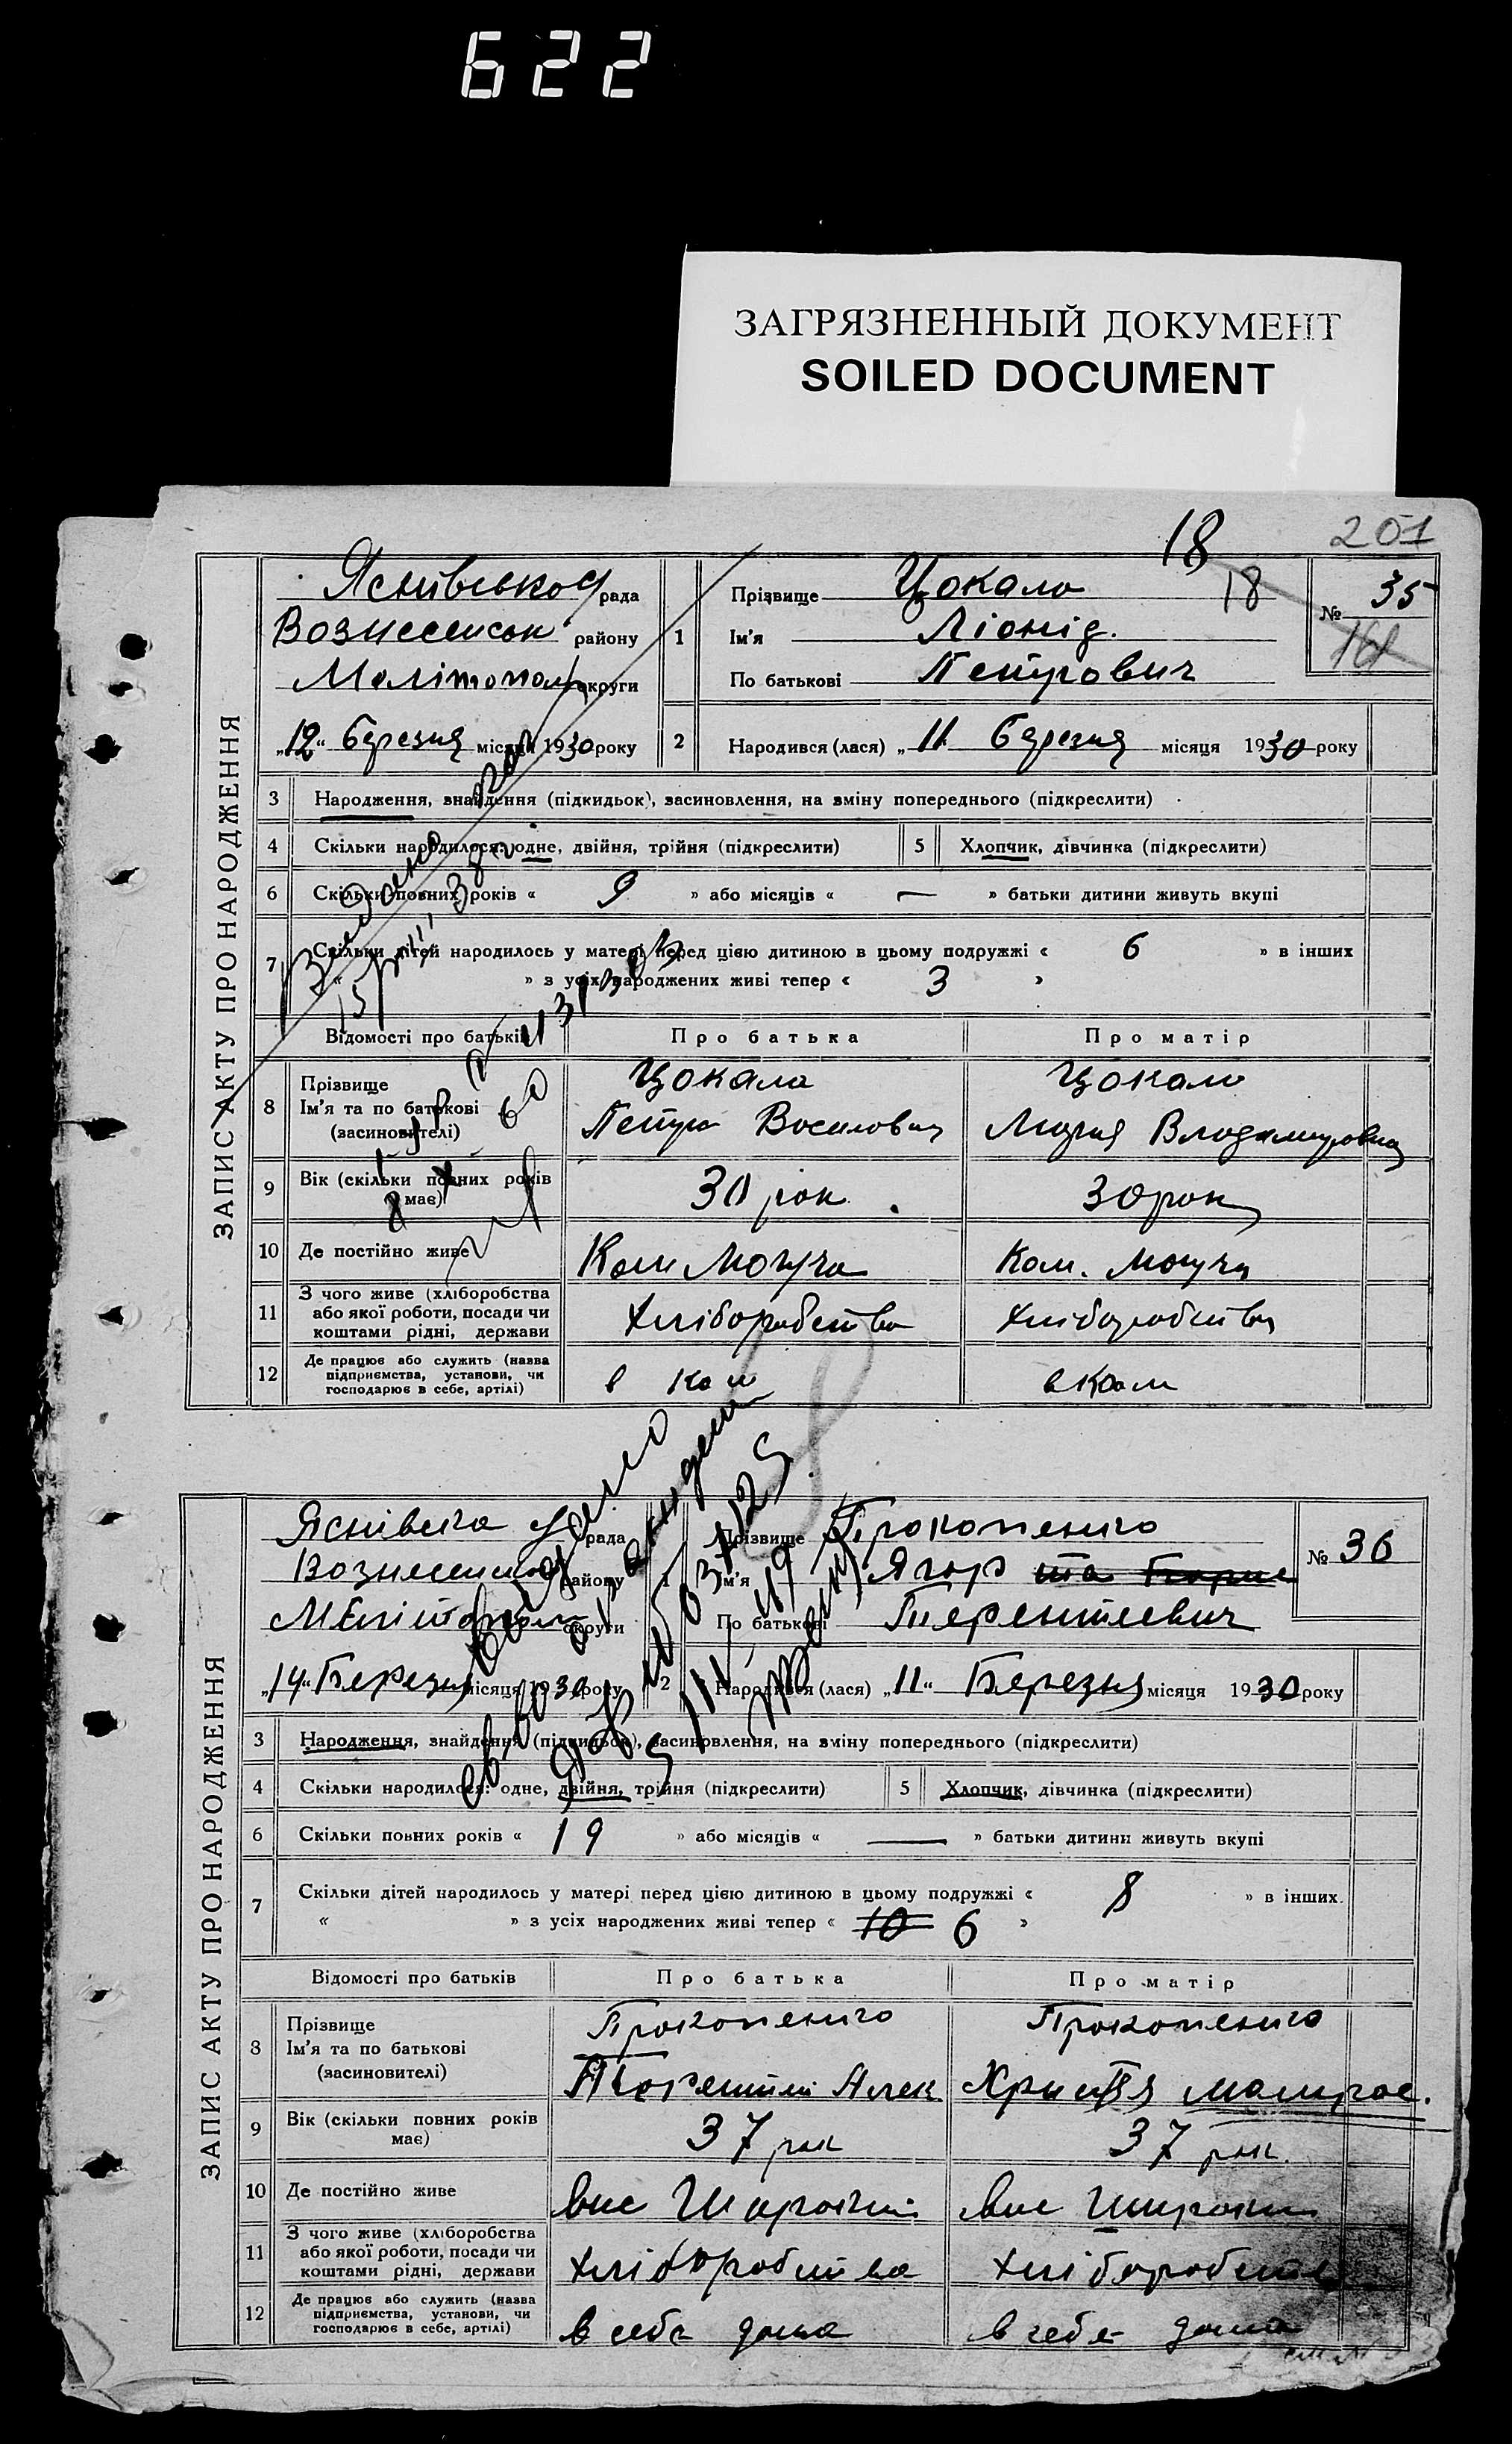 622
ЗАГРЯЗНЕННЫЙ ДОКУМЕНТ
SOILED DOCUMENT
18
201
ЗАПИС АКТУ ПРО НАРОДЖЕННЯ
рада
Вознесенськ району
округи
„12“ березня місяця 1930 року
1
Прізвище Цокало
18
Ім'я Ліонід.
По батькові Петрович
№ 35
2 Народився (лася) „11 березня місяця 1930 року
3 Народження, знайдення (підкидьок), засиновлення, на зміну попереднього (підкреслити)
4 Скільки народилося: одне, двійня, трійня (підкреслити) 5 Хлопчик, дівчинка (підкреслити)
6 Скільки повних років « 9 » або місяців « — » батьки дитини живуть вкупі
7 Скільки дітей народилось у матері перед цією дитиною в цьому подружжі « 6 » в інших
« » з усіх народжених живі тепер « 3 »
Відомості про батьків Про батька Про матір
8 Прізвище
Ім'я та по батькові
(засиновителі)
Цокало
Петро Василович
Цокало
Мария Владимировна
9 Вік (скільки повних років має) 30 рок. 30 рок
10 Де постійно живе Ком Могуча Ком. Могуча
11 З чого живе (хліборобства або якої роботи, посади чи коштами рідні, держави
Хліборобства хліборобства
12 Де працює або служить (назва підприємства, установи, чи господарює в себе, артілі)
в ком в ком
ЗАПИС АКТУ ПРО НАРОДЖЕННЯ
рада
району
округи
„14“ Березня місяця 1930 року
1
Прізвище Прокопенко
Ім'я Ягор
По батькові Терентиевич
№ 36
2 Народився (лася) „11“ Березня місяця 1930 року
3 Народження, знайдення (підкидьок), засиновлення, на зміну попереднього (підкреслити)
4 Скільки народилося: одне, двійня, трійня (підкреслити) 5 Хлопчик, дівчинка (підкреслити)
6 Скільки повних років « 19 » або місяців « — » батьки дитини живуть вкупі
7 Скільки дітей народилось у матері перед цією дитиною в цьому подружжі « 8 » в інших.
« » з усіх народжених живі тепер « 10 6 »
Відомості про батьків Про батька Про матір
8 Прізвище
Ім'я та по батькові
(засиновителі)
Прокопенко
Алек
Прокопенко
9 Вік (скільки повних років має) 37 рок 37 рок.
10 Де постійно живе
11 З чого живе (хліборобства або якої роботи, посади чи коштами рідні, держави
хліборобства
12 Де працює або служить (назва підприємства, установи, чи господарює в себе, артілі)
в себе дома в себе дома